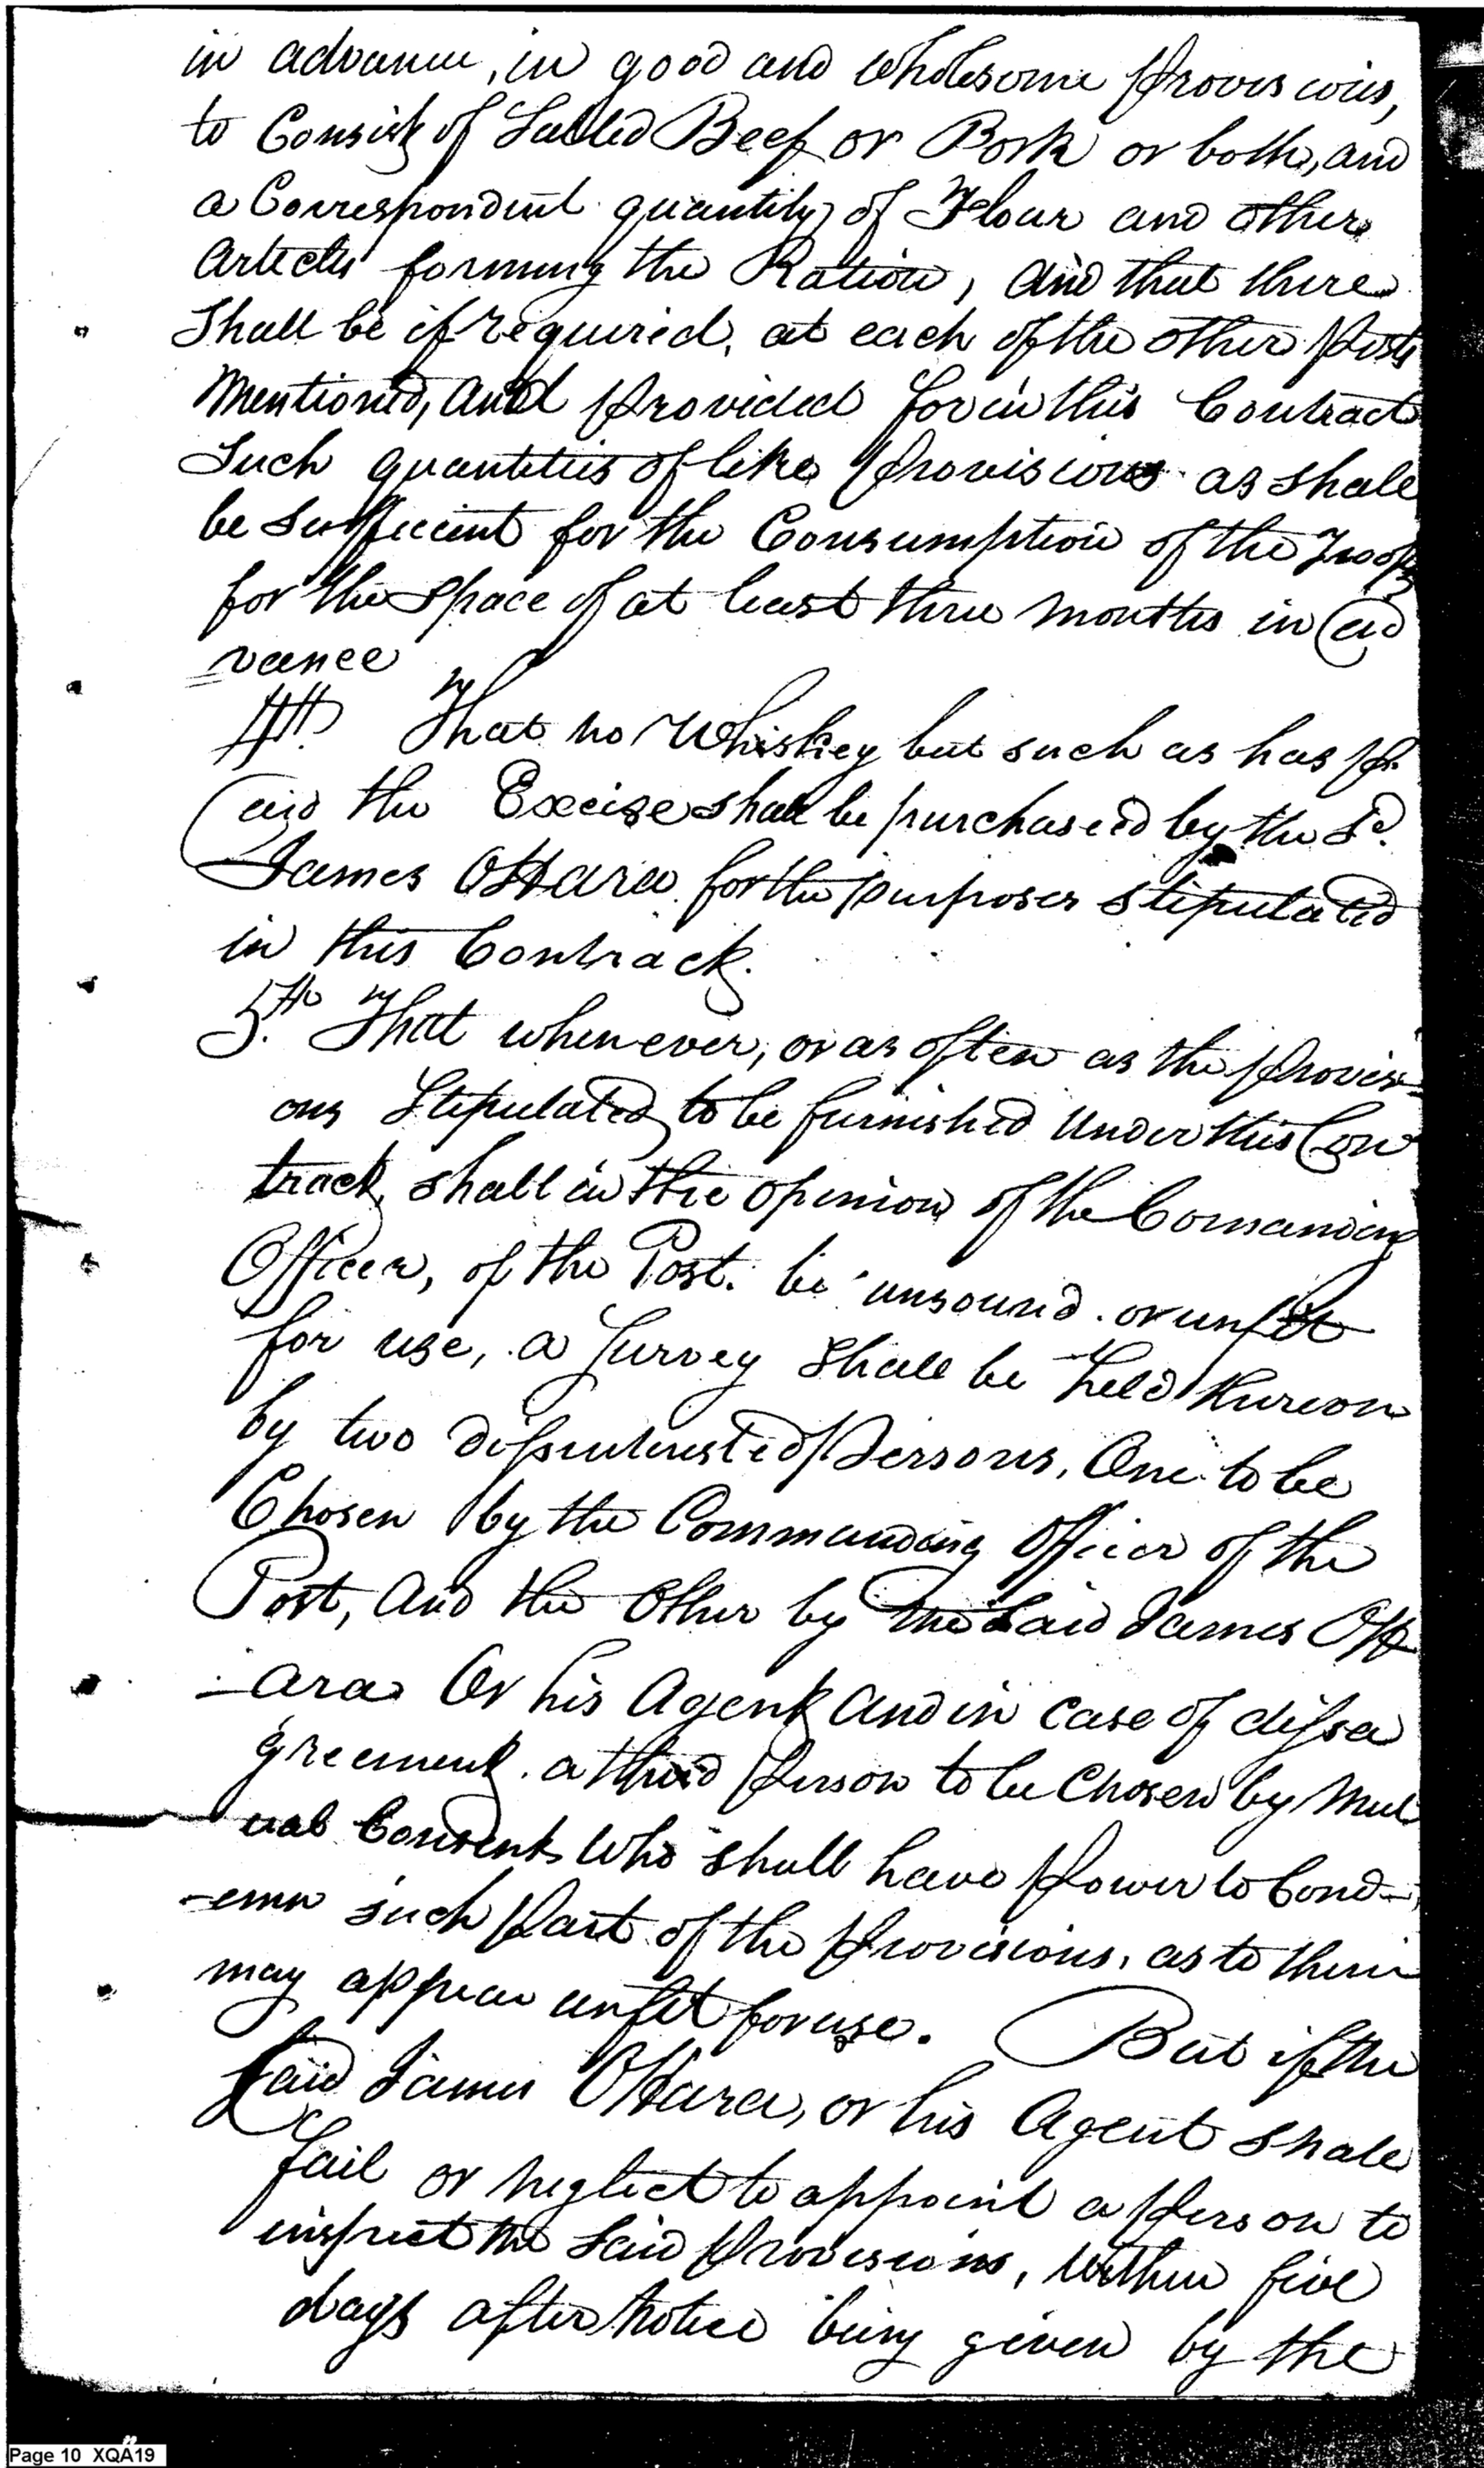 in advance, in good and wholesome Provisions,
to Consist of Salted Beef or Pork or both, and
a Correspondent quantity of Flour and other
Articles forming the Ration, and that there
Shall be if required, at each of the other Posts
Mentioned, and provided for in this Contract
Such quantities of like Provisions as shall
be Sufficient for the Consumption of the Troops
for the Space of at least three months in ad
vance
4th. That no Whiskey but such as has p
aid the Excise shall be purchased by the Sd.
James OHara for the purposes Stipulated
in this Contract.
5.th That whenever, or as often as the Provisi
ons Stipulated to be furnished Under this Con
tract, shall in the opinion of the Comanding
Officer, of the Post. be unsound. or unfit
for use, a Survey Shall be held thereon
by two dissinterested Persons, One to be
Chosen by the Commanding Officer of the
Post, and the Other by the Said James OH
-ara Or his Agent and in Case of dissa
greement. a third Person to be Chosen by Mut
ual Consent Who shall have Power to Cond-
-emn such Part of the Provisions, as to them
may appear unfit for use. But if the
Said James OHara, or his Agent shall
fail or neglect to appoint a Person to
inspect the Said Provisions, within five
days after Notice being given by the
Page 10 XQA19